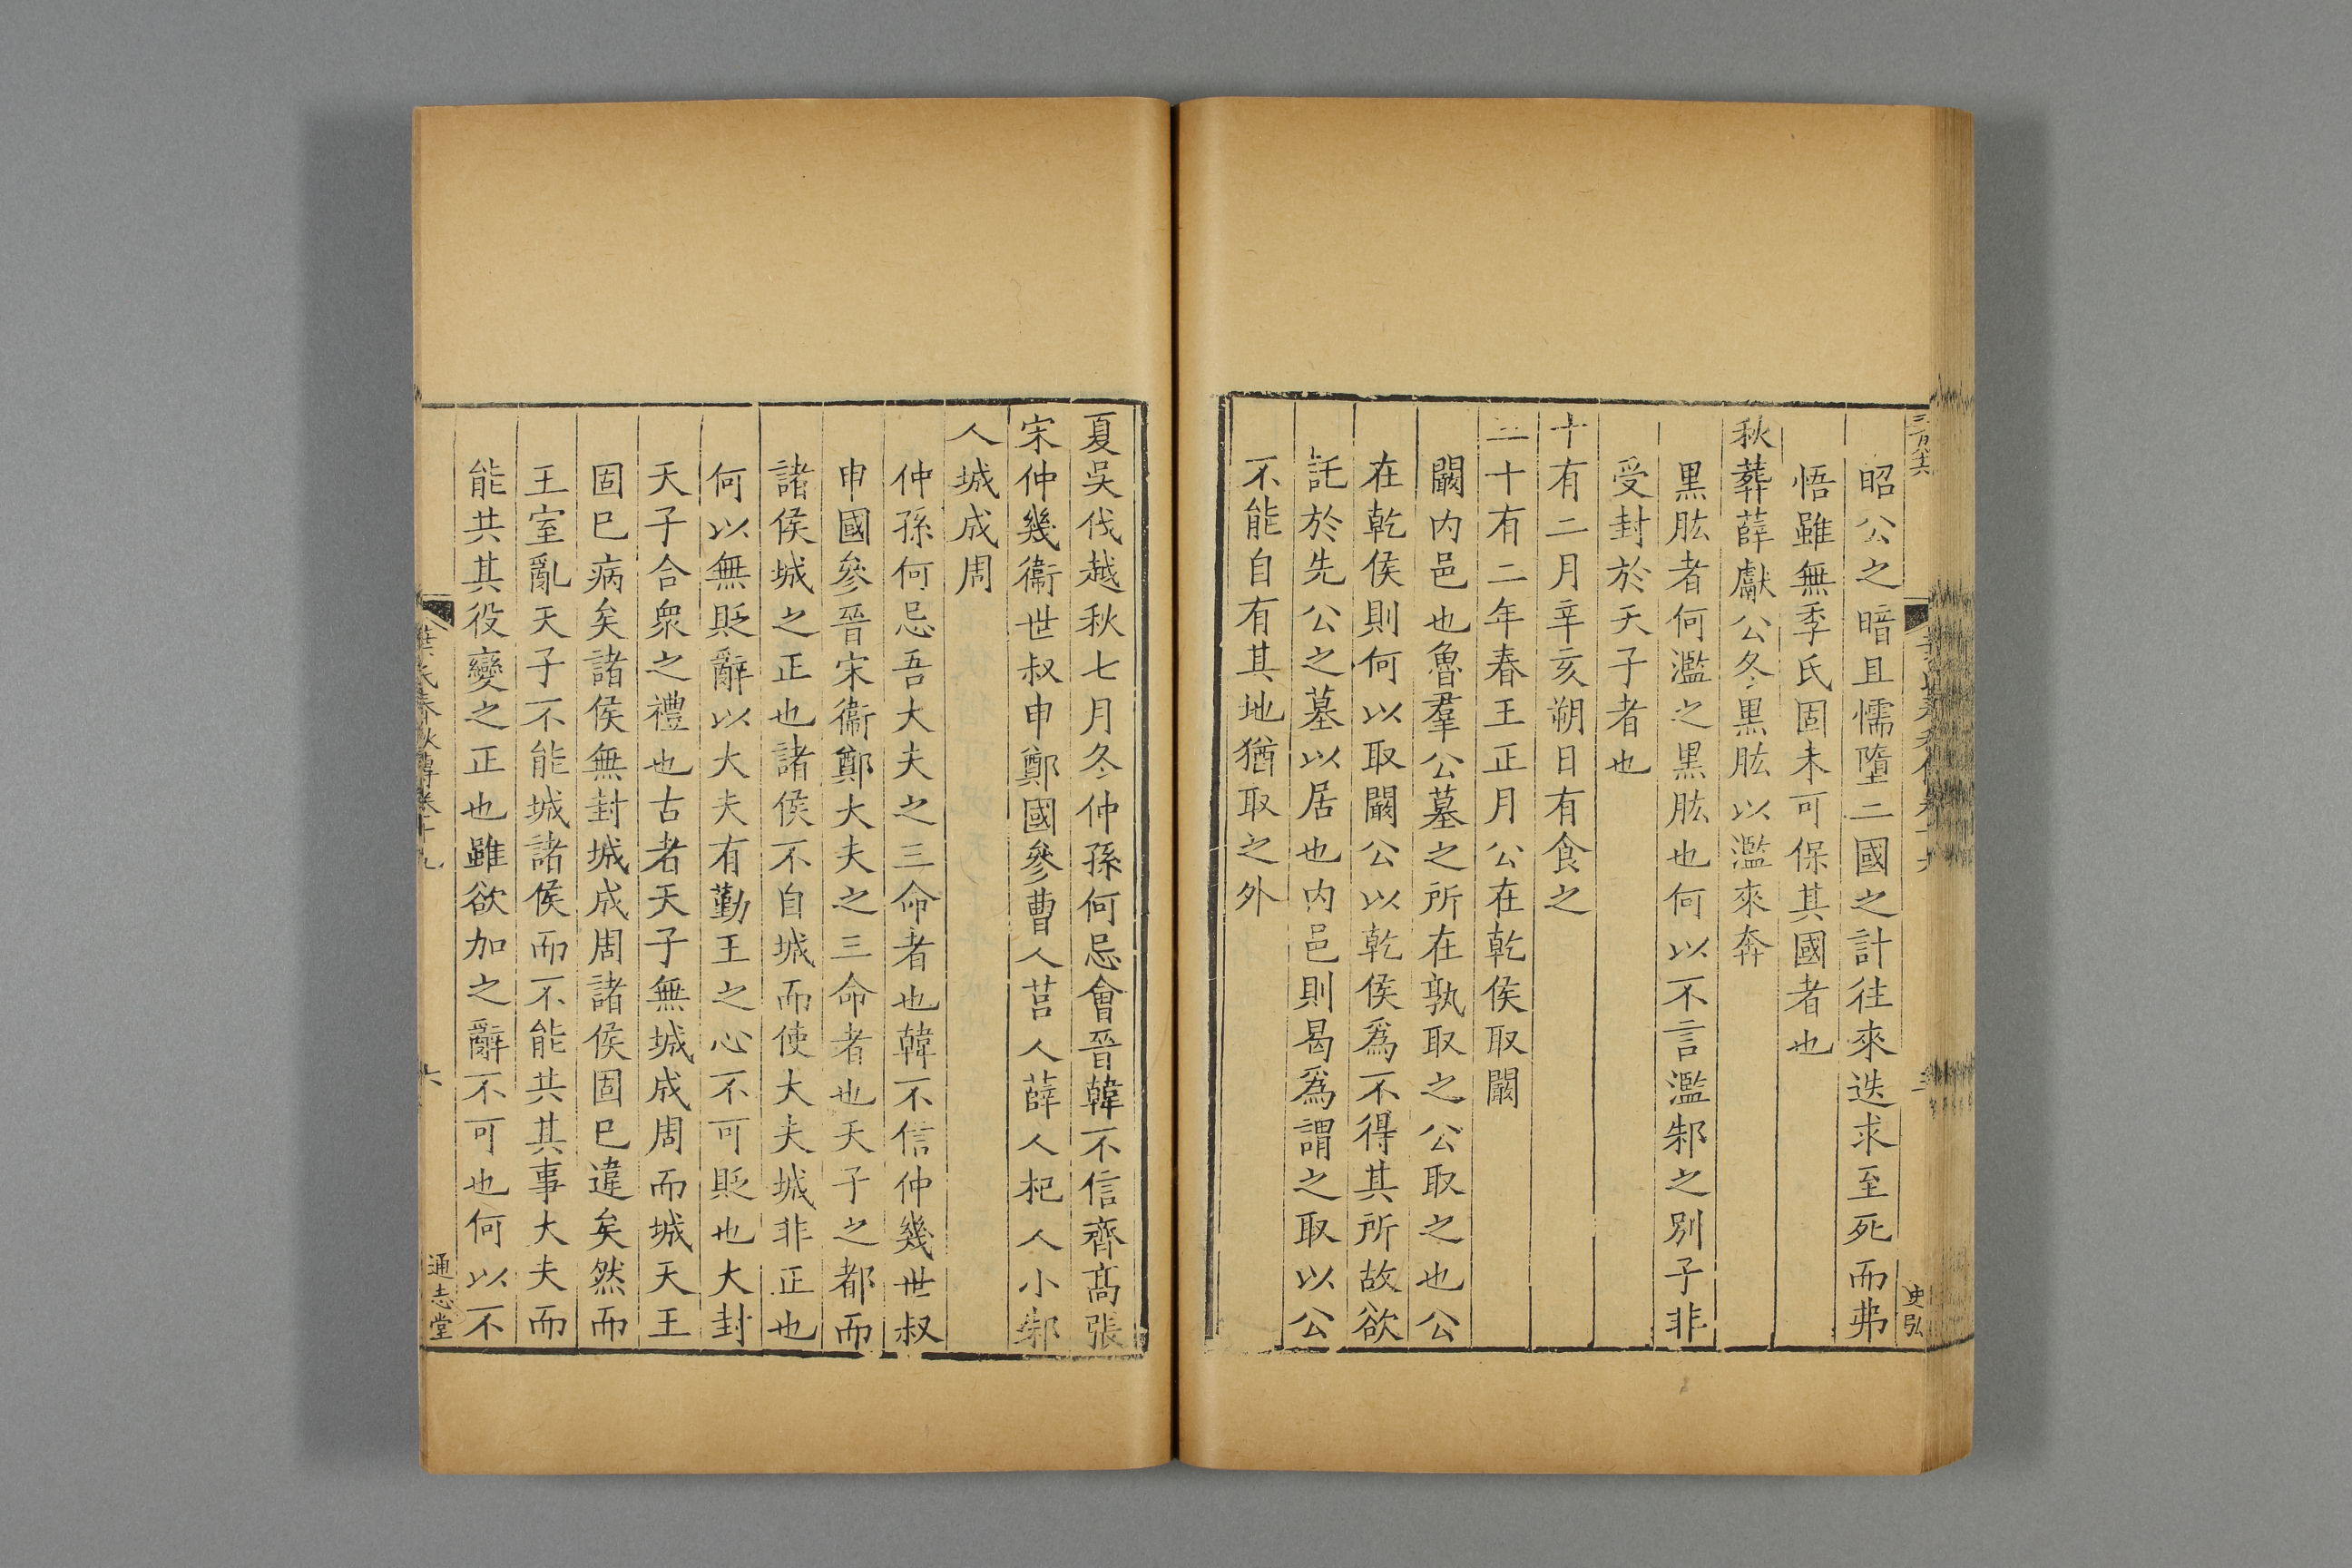 昭公之暗且懦墮二國之計往來迭求至死而弗
悟雖無季氏固未可保其國者也
秋葬薛獻公冬黑肱以濫來奔
黑肱者何濫之黑肱也何以不言濫邾之別子非
受封於天子者也
十有二月辛亥朔日有食之
三十有二年春王正月公在乾侯取闞
闞内邑也魯羣公墓之所在孰取之公取之也公
在乾侯則何以取闞公以乾侯爲不得其所故欲
託於先公之墓以居也内邑則曷爲謂之取以公
不能自有其地猶取之外
史弘
夏吳伐越秋七月冬仲孫何忌會晉韓不信齊高張
宋仲幾衞世叔申鄭國參曹人莒人薛人杞人小邾
人城成周
仲孫何忌吾大夫之三命者也韓不信仲幾世叔
申國參晉宋衞鄭大夫之三命者也天子之都而
諸侯城之正也諸侯不自城而使大夫城非正也
何以無貶辭以大夫有勤王之心不可貶也大封
天子合衆之禮也古者天子無城成周而城天王
固已病矣諸侯無封城成周諸侯固已違矣然而
王室亂天子不能城諸侯而不能共其事大夫而
能共其役變之正也雖欲加之辭不可也何以不
葉氏春秋傳卷十九
六
通志堂